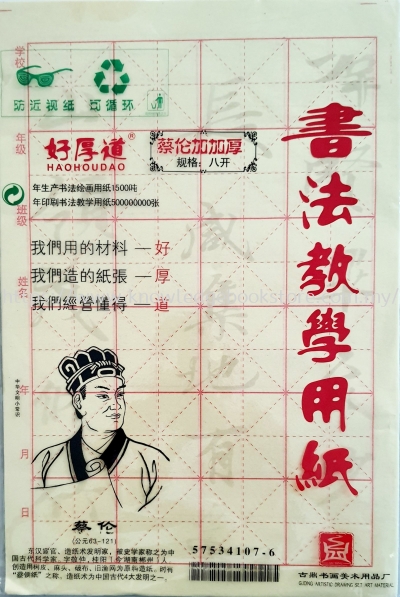 学校
防近视纸 可循环
年级
好厚道®
HAOHOUDAO
蔡伦加加厚
规格：八开
班级
年生产书法绘画用纸1500吨
年印刷书法教学用纸500000000张
我們用的材料 — 好
我們造的紙張 — 厚
我們經營懂得 — 道
姓名
年
月
日
書法教學用紙
蔡伦
(公元63-121)
东汉宦官、造纸术发明家，被史学家称之为中
国古代科学家，字敬仲，桂阳（今湖南郴州）人
创造用树皮、麻头、破布、旧渔网为原料造纸，时有
"蔡侯纸"之称，造纸术为中国古代4大发明之一
57534107-6
古鼎书画美术用品厂